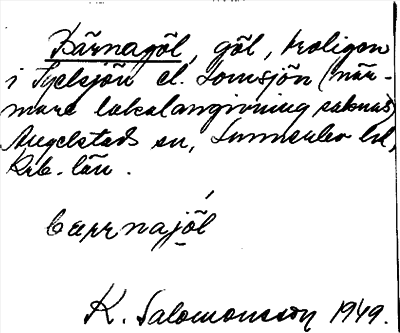 Bärnagöl, göl, troligen
i Tjelsjön el. Lomsjön (när-
mare lokalangivning saknas)
Angelstads sn, Sunnerbo hd,
Krb. län.
bærnajöl
K. Salomonsson 1949.